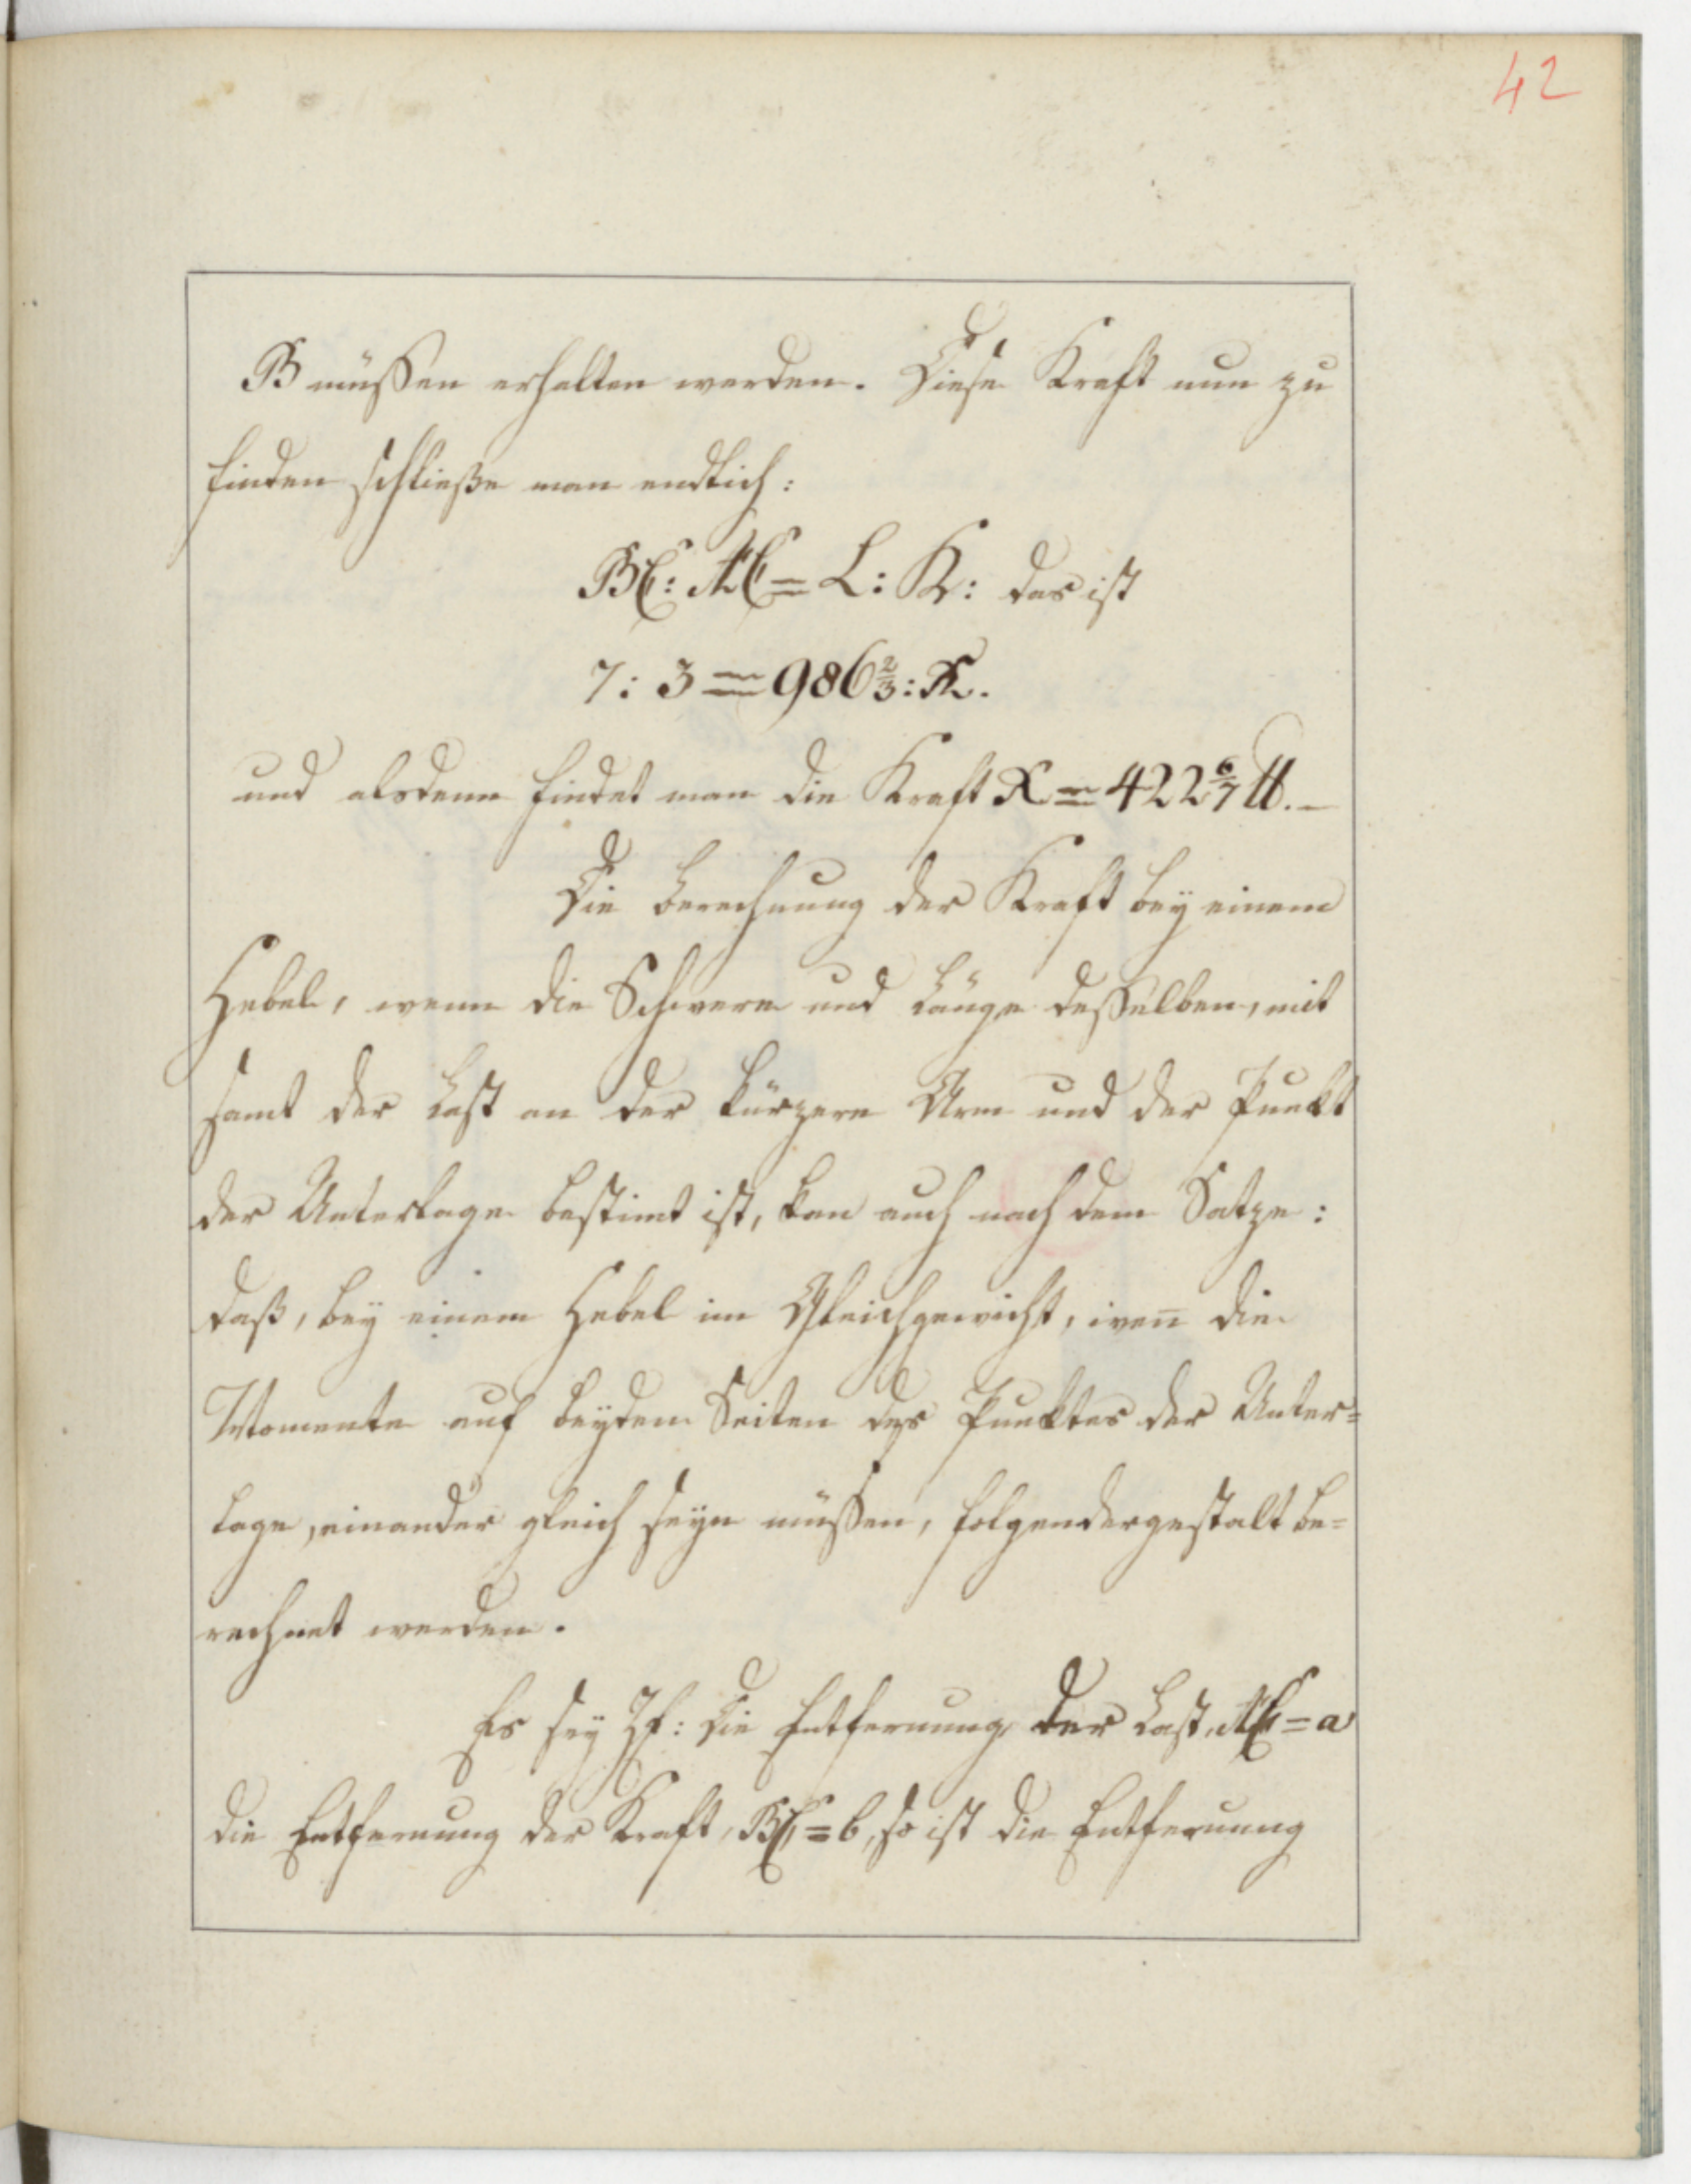 42
B müssen erhalten werden. Diese Kraft nun zu
finden schließe man endlich:
BC: AC = L: K: das ist
7: 3 = 986 2/3: K.
und alsdenn findet man die Kraft K = 422 6/7 ℔. –
Die Berechnung der Kraft bey einem
Hebel, wenn die Schwere und Länge desselben, mit
samt der Last an der kürzern Arm und der Punkt
der Unterlage bestimt ist, kan auch nach dem Satze:
daß, bey einem Hebel im Gleichgewicht, wen̄ die
Momente auf beyden Seiten des Punktes der Unter=
lage, einander gleich seyn müssen, folgendergestalt be=
rechnet werden.
Es sey die Entfernung der Last, AC = a
die Entfernung der Kraft, BC = b, so ist die Entfernung